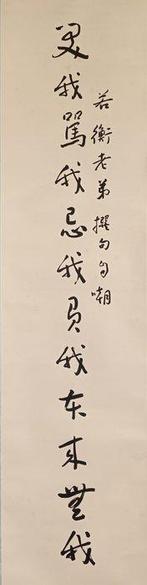 若衡老弟撰句自嘲
笑我罵我忌我負我本来無我